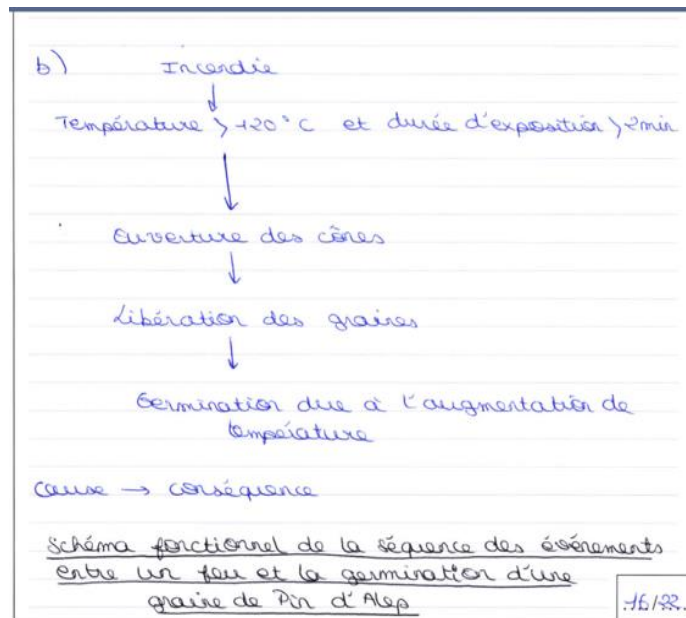 b) Incendie
↓
Température > 120°C et durée d'exposition > 2min
↓
Ouverture des cônes
↓
Libération des graines
↓
Germination due à l'augmentation de
température
cause → conséquence
Schéma fonctionnel de la séquence des événements
entre un feu et la germination d'une
graine de Pin d'Alep
16/22.